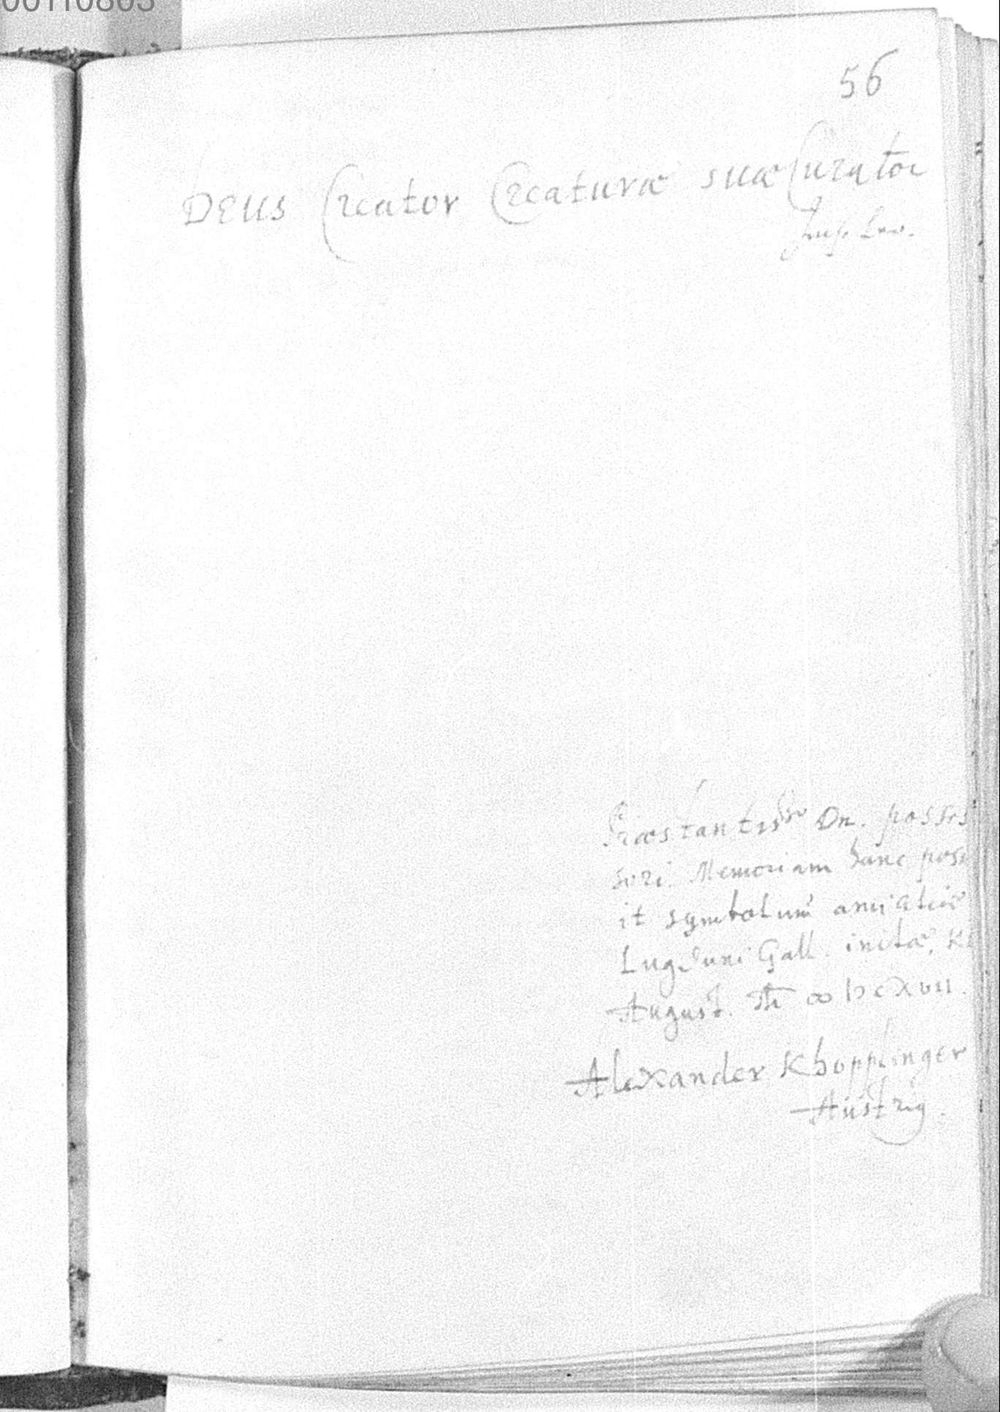 00110803
56
DEUS Creator Creaturæ suæ Curator
Præstantiss͞o Dn. posses
sori. Memoriam hanc pos
it symbolum amicitiæ
Lugduni Gall. initæ, Kl
August. A͞o ꝏ IↃCXVII.
Alexander Khopplinger
Austri9.